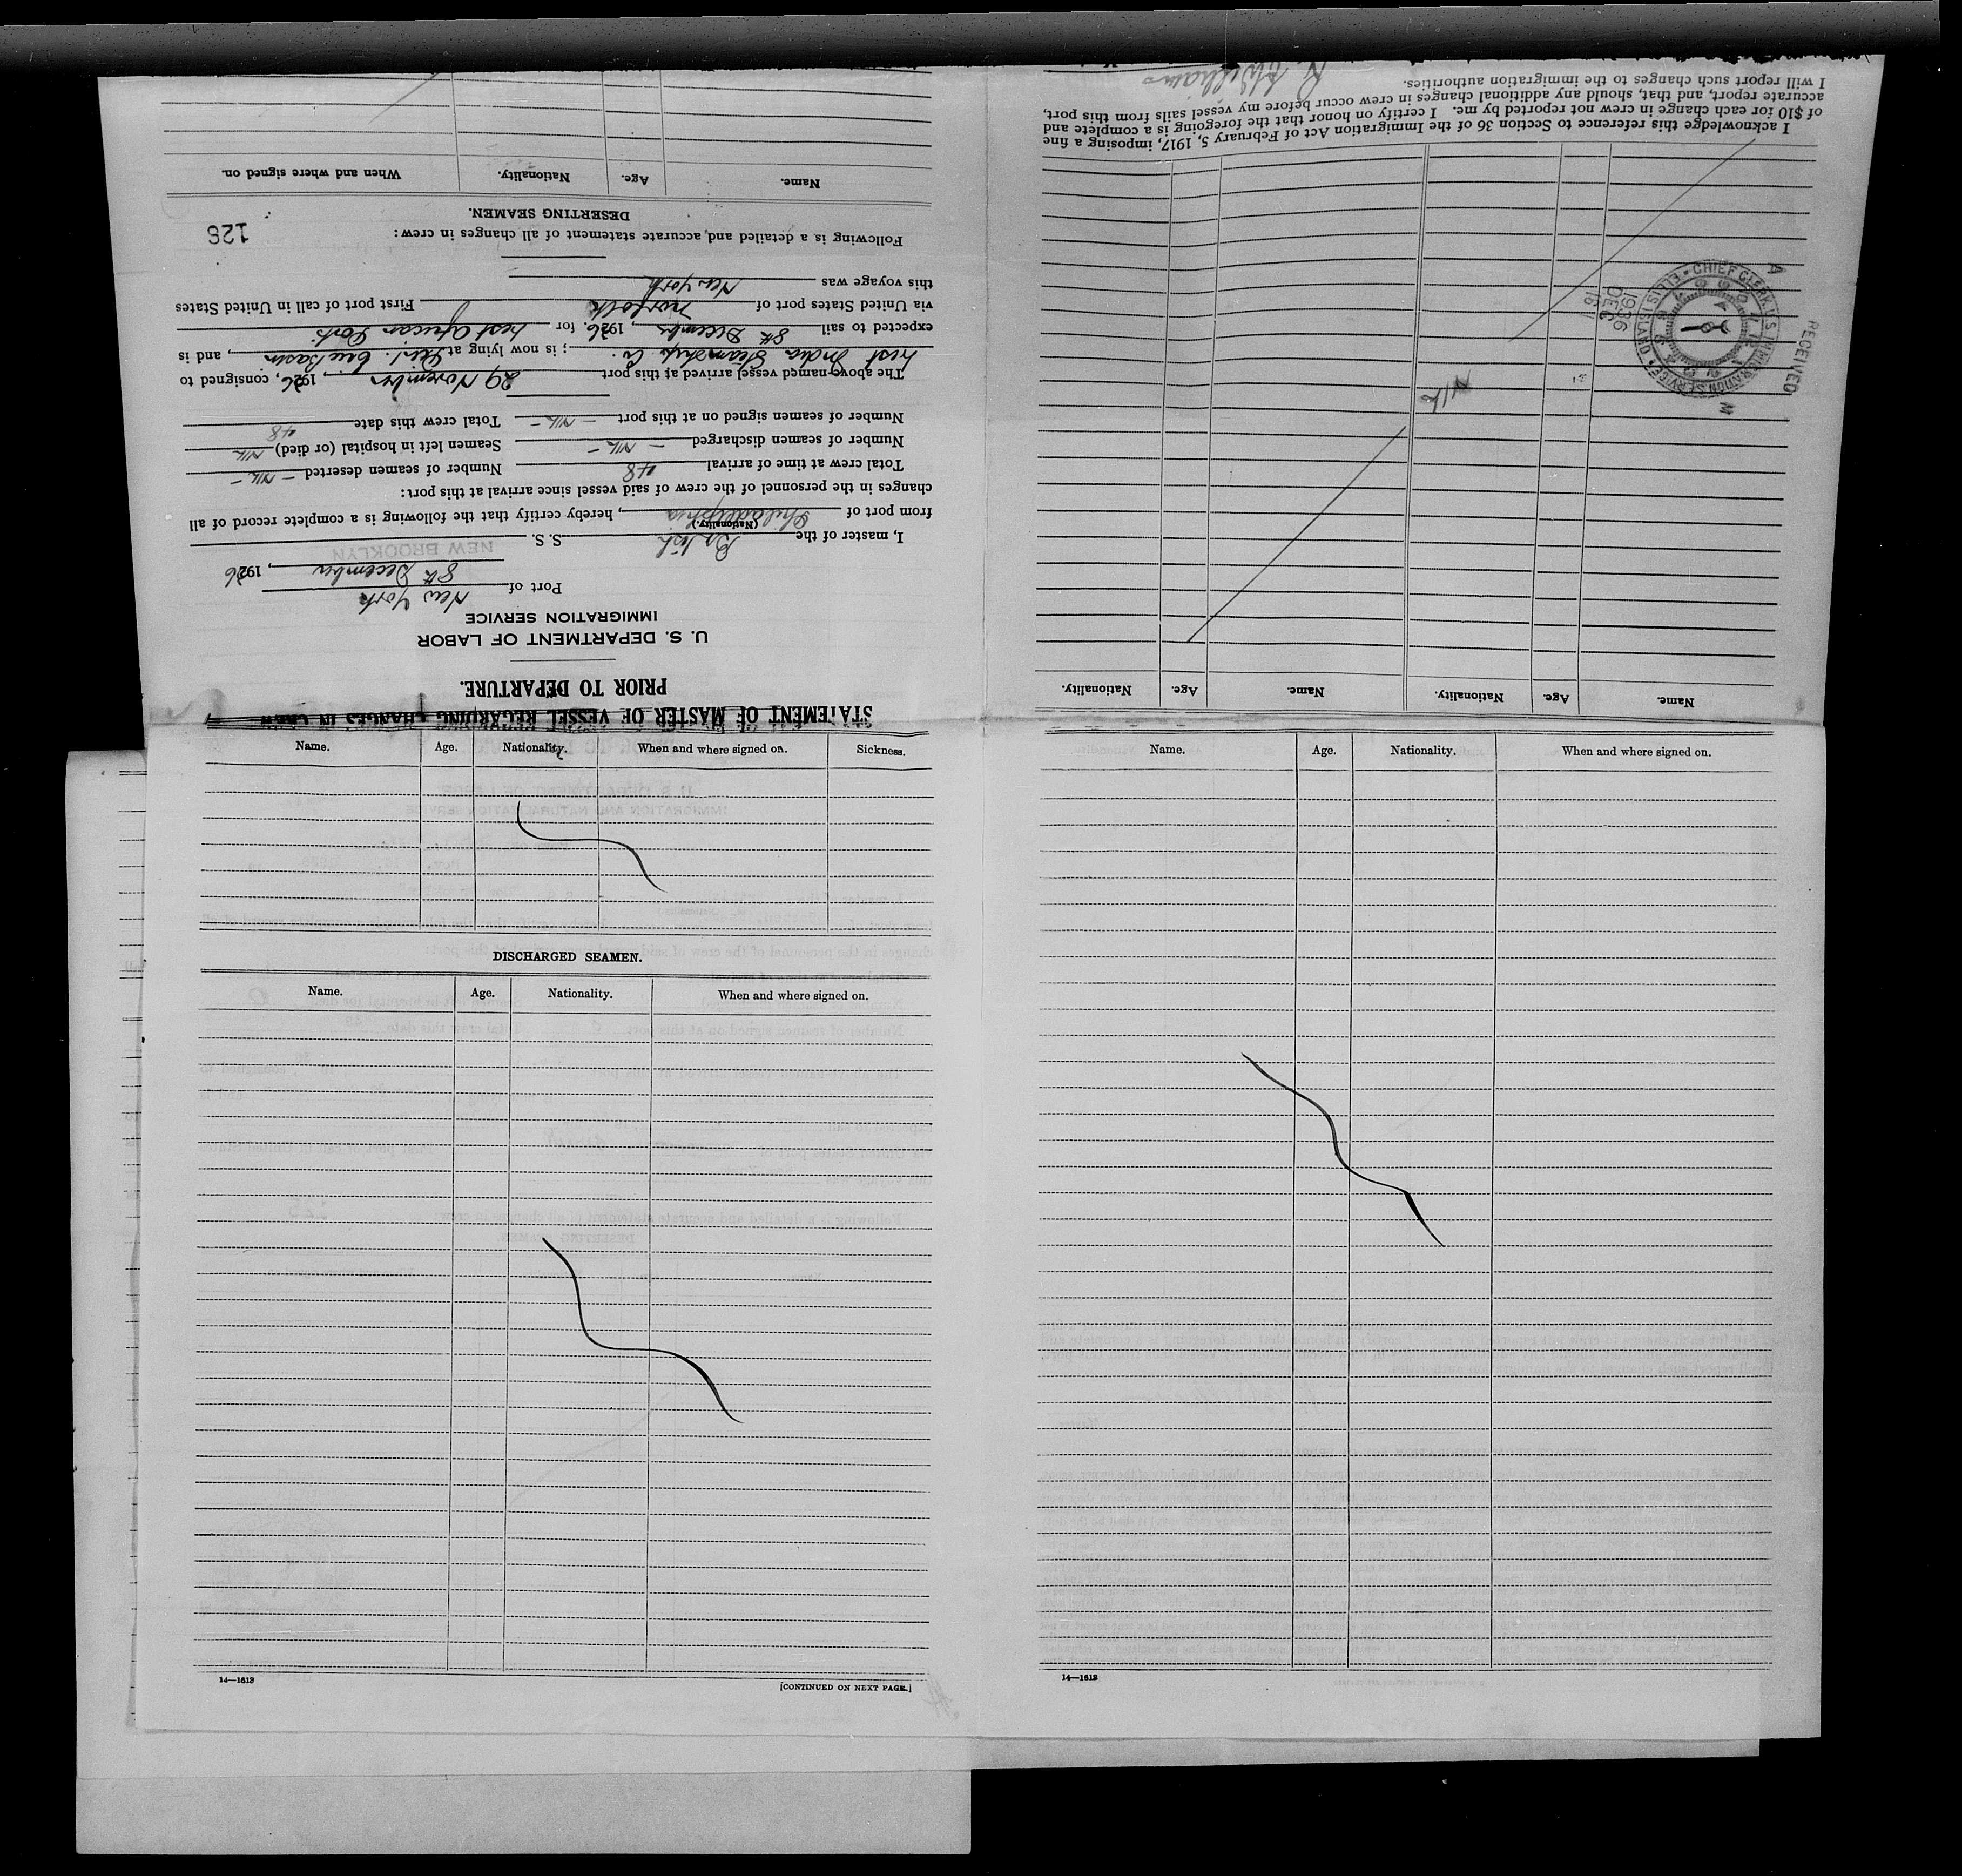 STATEMENT OF MASTER OF VESSEL REGARDING CHANGES IN CREW
PRIOR TO DEPARTURE.
U. S. DEPARTMENT OF LABOR
IMMIGRATION SERVICE
Port of New York
8th December, 1936
NEW BROOKLYN
I, master of the British S. S.
(Nationality.)
from port of Philadelphia, hereby certify that the following is a complete record of all
changes in the personnel of the crew of said vessel since arrival at this port:
Total crew at time of arrival 48 Number of seamen deserted - NIL -
Number of seamen discharged - NIL - Seamen left in hospital (or died) NIL
Number of seamen signed on at this port - NIL - Total crew this date 48
The above-named vessel arrived at this port 29 November, 1936, consigned to
West India Steamship Co.; is now lying at Erie Basin, and is
expected to sail 8th December, 1936. for West African Ports
via United States port of Norfolk First port of call in United States
this voyage was New York
Following is a detailed and accurate statement of all changes in crew:
128
DESERTING SEAMEN.
Name. Age. Nationality. When and where signed on.
Name. Age. Nationality. Name. Age. Nationality.
NIL
RECEIVED
CHIEF CLERK U.S. IMMIGRATION SERVICE
ELLIS ISLAND
1936 DEC 15
A
M
I acknowledge this reference to Section 36 of the Immigration Act of February 5, 1917, imposing a fine
of $10 for each change in crew not reported by me. I certify on honor that the foregoing is a complete and
accurate report, and that, should any additional changes in crew occur before my vessel sails from this port,
I will report such changes to the immigration authorities.
Williams
Name. Age. Nationality. When and where signed on. Sickness.
DISCHARGED SEAMEN.
Name. Age. Nationality. When and where signed on.
14—1613
[CONTINUED ON NEXT PAGE.]
Name. Age. Nationality. When and where signed on.
14—1613